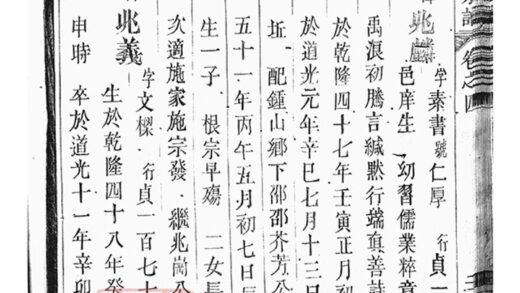 譜 卷之四
兆麟 字素書 號仁厚 行貞一
邑庠生 幼習儒業粹意
禹浪初騰言緘默行端直善詩
於乾隆四十七年壬寅正月
於道光元年辛巳七月十三日
坵 配鍾山鄉下邵邵芥芳公
五十一年丙午五月初七日
生一子 根宗早殤 二女長
次適施家施宗發 繼兆崗公
兆義 字文樑 行貞一百七十
生於乾隆四十八年癸
申時 卒於道光十一年辛卯